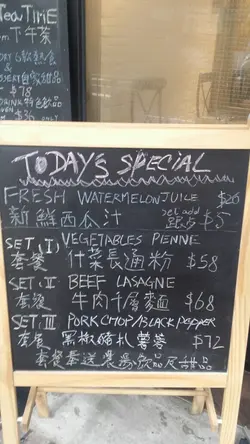 Tea TimE
下午茶
&
DESSERT自選甜品
$78
DRINK特色飲品
$36 ONLY
TODAY'S SPECIAL
FRESH WATERMELON JUICE $26
新鮮西瓜汁 set add $5
SET (I) VEGETABLES PIENNE
套餐 什菜長通粉 $58
SET II BEEF LASAGNE
套餐 牛肉千層麵 $68
SET III PORK CHOP/BLACK PEPPER
套餐 黑椒豬扒薯蓉 $72
套餐奉送餐湯飲品及甜品